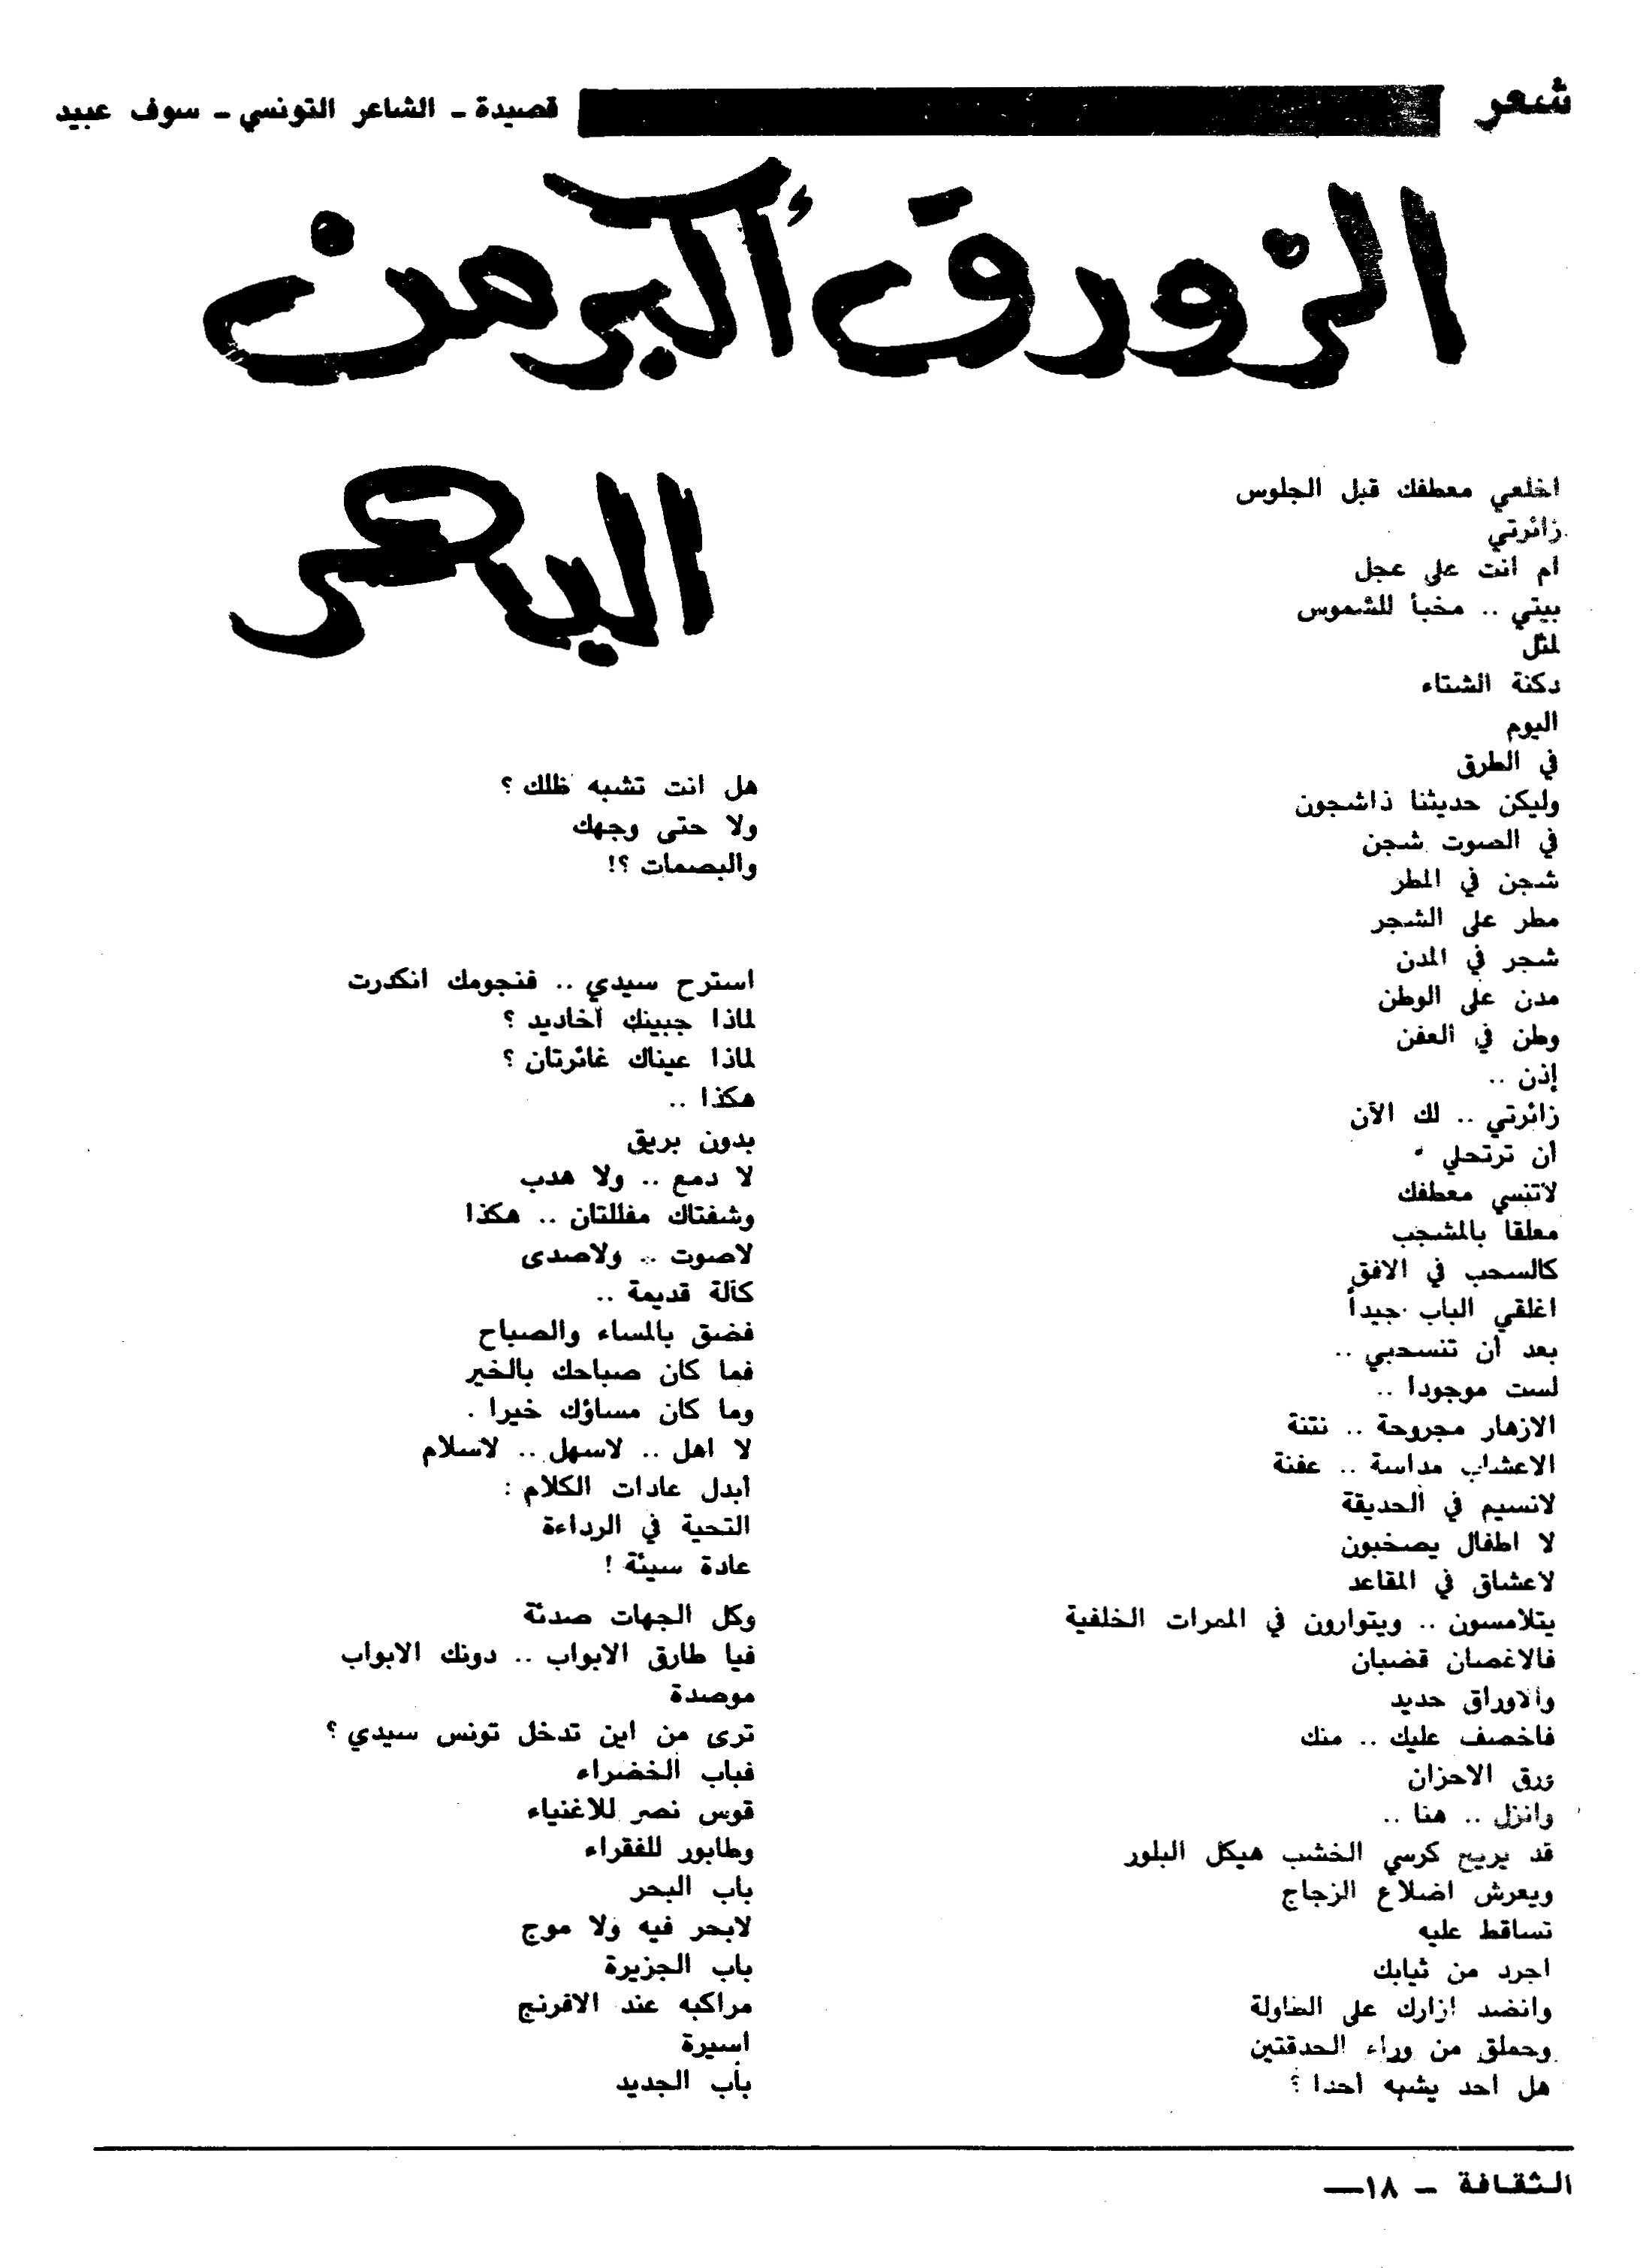 شعر
قصيدة - الشاعر التونسي - سوف عبيد
الزورق أكبر من
البحر
اخلعي معطفك قبل الجلوس
زائرتي
أم أنت على عجل
بيتي .. مخبأ للشموس
لمثل
دكنة الشتاء
اليوم
في الطرق
وليكن حديثنا ذاشجون
في الصوت شجن
شجن في المطر
مطر على الشجر
شجر في المدن
مدن على الوطن
وطن في العفن
إذن ..
زائرتي .. لك الآن
أن ترتحلي
لاتنسي معطفك
معلقا بالمشجب
كالسحب في الافق
اغلقي الباب جيداً
بعد أن تنسحبي ..
لست موجودا ..
الازهار مجروحة .. نتنة
الاعشاب مداسة .. عفنة
لانسيم في الحديقة
لا اطفال يصخبون
لاعشاق في المقاعد
يتلامسون .. ويتوارون في الممرات الخلفية
فالاغصان قضبان
والاوراق حديد
فاخصف عليك .. منك
ورق الاحزان
وانزل .. هنا ..
قد يريح كرسي الخشب هيكل البلور
ويعرش اضلاع الزجاج
تساقط عليه
اجرد من ثيابك
وانضد ازارك على الطاولة
وحملق من وراء الحدقتين
هل أحد يشبه أحدا ؟
هل انت تشبه ظلك ؟
ولا حتى وجهك
والبصمات ؟!
استرح سيدي .. فنجومك انكدرت
لماذا جبينك أخاديد ؟
لماذا عيناك غائرتان ؟
هكذا ..
بدون بريق
لا دمع .. ولا هدب
وشفتاك مفللتان .. هكذا
لاصوت .. ولاصدى
كآلة قديمة ..
فضق بالمساء والصباح
فما كان صباحك بالخير
وما كان مساؤك خيرا .
لا اهل .. لاسهل .. لاسلام
أبدل عادات الكلام :
التحية في الرداءة
عادة سيئة !
وكل الجهات صدئة
فيا طارق الابواب .. دونك الابواب
موصدة
ترى من اين تدخل تونس سيدي ؟
فباب الخضراء
قوس نصر للاغنياء
وطابور للفقراء
باب البحر
لابحر فيه ولا موج
باب الجزيرة
مراكبه عند الافرنج
أسيرة
باب الجديد
الثقافة - ١٨ـــ